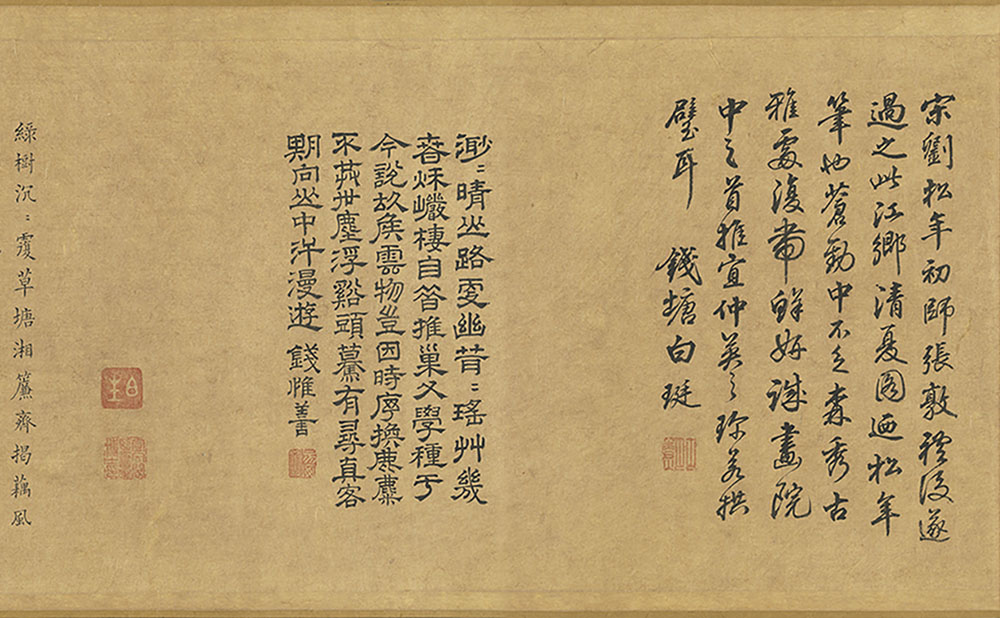 宋劉松年初師張敦禮後遂
過之此江鄉清夏圖迺松年
筆也蒼勁中不乏森秀古
雅處復帶鮮妍誠畫院
中之首推宜仲英之珍若拱
璧耳 錢塘白珽
渺〻晴山路更幽昔〻瑤艸幾
春秌巖棲自昔推巢父學種于
今說故矦雲物豈因時序換鹿麋
不共世塵浮谿頭驀有尋真客
期向山中汗漫遊 錢惟善
綠樹沉〻覆草塘湘簾齊揭藕風